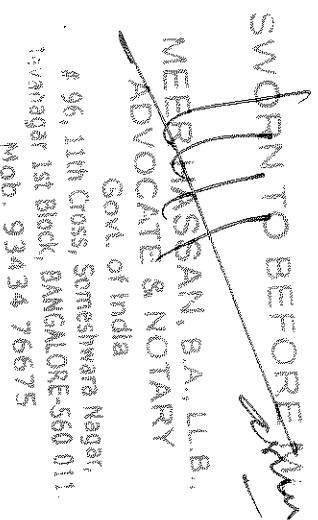 SWORN TO BEFORE
MEER HASSAN, B.A., LL.B.,
ADVOCATE & NOTARY
Govt. of India
# 96, 11th Cross, Someshwara Nagar,
1st Block, BANGALORE-560 011
Mob. 93434 76675